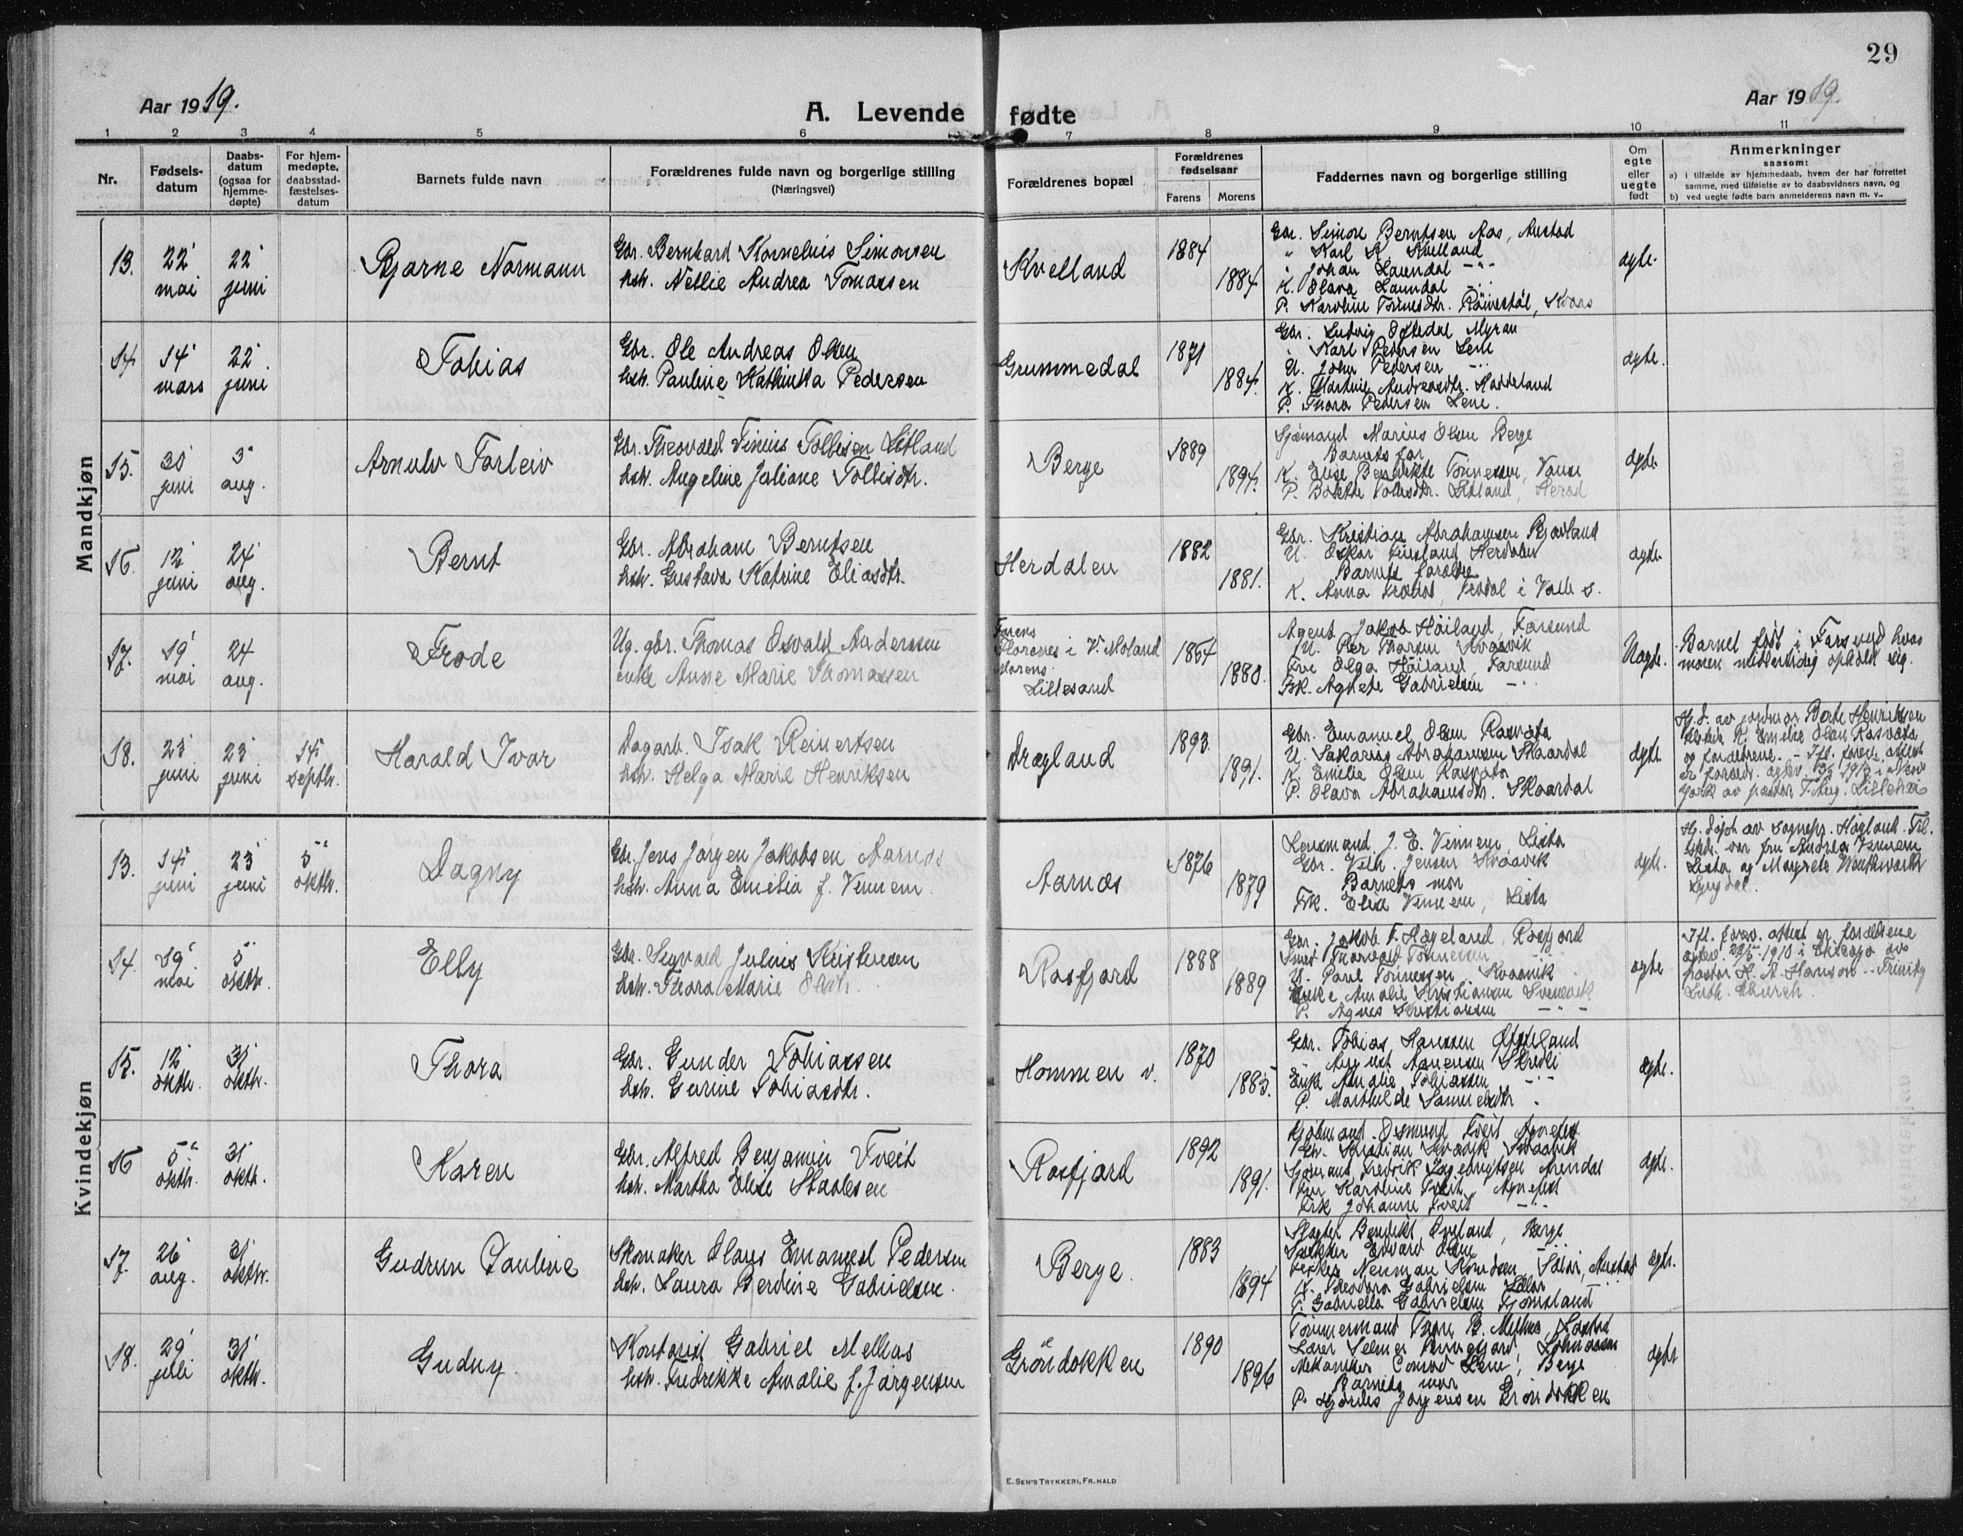 29
Aar 1919.
A. Levende fødte
Aar 1919.
1 2 3 4 5 6 7 8 9 10 11
Nr.
Fødsels-
datum
Daabs-
datum
(ogsaa for
hjemme-
døpte)
For hjem-
medøpte,
daabsstad-
fæstelses-
datum
Barnets fulde navn
Forældrenes fulde navn og borgerlige stilling
(Næringsvei)
Forældrenes bopæl
Forældrenes
fødselsaar
Farens Morens
Faddernes navn og borgerlige stilling
Om
egte
eller
uegte
født
Anmerkninger
saasom:
a) i tilfælde av hjemmedaab, hvem der har forrettet
samme, med tilføielse av to daabsvidners navn, og
b) ved uegte fødte barn anmelderens navn m. v.
Mandkjøn
13.
22
mai
22
juni
Bjarne Normann
Gbr. Bernhard Kornelius Simonsen
hstr. Nellie Andrea Tomassen
Kvelland
1884
1884.
Gbr. Simon Berntsen Aas, Austad
" Karl K. Kvelland
" Johan Laundal -"-
K. Olava Laundal
P. Karoline Tønnesdtr. Røinestøl, Kvaas
ægte.
14.
14
mars
22
juni
Tobias
Gbr. Ole Andreas Olsen
hstr. Pauline Kathinka Pedersen
Grummedal
1871
1884.
Gbr. Ludvig Opsedal Myran
" Karl Pedersen Lene
U. John Pedersen
K. Martine Andreasdtr.
P. Thora Pedersen Lene.
ægte.
15.
juni
5
aug.
Arnulv Torleiv
Gbr. Theovald Tinius Tollisen Litland
hstr. Angeline Juliane Tollisdtr.
Berge
1889
1894.
Sjømand Marius Olsen Berge
Barnets far
K. Elise Bendikte Tønnessen, Vanse
P. Bolette Litland, Herad
ægte.
16.
12
juni
24
aug.
Bernt
Gbr. Abraham Berntsen
hstr. Gustava Katrine Eliasdtr.
Herdalen
1882
1881.
Gbr. Kristian Abrahamsen
U. Oskar Herdalen
Barnets forældre
K. Anna i Valle s.
ægte.
17.
19
mai
24
aug.
Frode
Ug. gbr. Thomas Osvald Anderssen
enke Anne Marie Thomassen
Farens
i V. Moland
Morens
Lillesand
1864
1880.
Agent Jakob Høiland, Farsund
U. Per Kvaavik
Frue Olga Høiland Farsund
Frk. Agnete Gabrielsen -"-
Uægte.
Barnet født i Farsund hvor
moren midlertidig opholdt sig.
18.
23
juni
23
juni
14
septbr.
Harald Ivar
Dagarb. Isak Reinertsen
hstr. Helga Marie Henriksen
Drageland
1893.
1891.
Gbr. Emanuel Olsen Rasvata
U. Sakarias Abrahamsen Skaardal
K. Emilie Olsen Rasvata
P. Olava Abrahamsdtr. Skaardal
ægte.
Hj. d. av jordmor Berte Henriksen
K. Emilie Olsen Rasvata
og forældrene. - Ifl. forev. attest
er forældr. 1913 i New
York av pastor T. Aug. Lilleha
Kvindekjøn
13.
14
juni
23
juni
5
oktbr.
Dagny
Gbr. Jens Jørgen Jakobsen Aarnæs
hstr. Anna Emilia f. Vennem.
Aarnæs
1876
1879
Lensmand J. E. Vennem, Lista
Gbr. Vilh. Jensen Kvaavik
Barnets mor
Frk. Elise Vennem, Lista
ægte.
Hj. døpt av sognepr. Høgland. Til-
stede var fru Andrea Vennem
Lista og Margrete
Lyngdal.
14.
19
mai
5
oktbr.
Elly
Gbr. Sigvald Julius Kristensen
hstr. Thora Marie
Rosfjord
1888
1889
Gbr. Jakob T. Ageland, Rosfjord
Smed Thorvald Tønnessen
U. Paul Tønnessen, Kvaavik
Enke Amalie Kristiansen Svenevik
P. Agnes Kristiansen -"-
ægte
Ifl. forev. attest er forældrene
1910 i Chicago av
pastor H. A. Hanson - Trinity
Luth. Church.
15.
12
oktbr.
31
oktbr.
Thora
Gbr. Gunder Tobiassen
hstr. Gurine Tobiasdtr.
Hommen v.
1870
1885.
Gbr. Tobias Hanssen
August Aanensen Skreli
Enk. Amalie Tobiassen
P. Mathilde Samuelsdtr.
ægte.
16
5
oktbr.
31
oktbr.
Karen
Gbr. Alfred Benjamin Tveit
hstr. Martha Elise Staalesen
Rosfjord
1892
1891.
Kjøbmand Osmund Tveit Agnefest
Gbr. Kristian Kvavik Kvaavik
Sjømand Fredrik Ingebrigtsen Arendal
Fru Karoline Tveit Agnefest
Frk Johanne Tveit -"-
ægte.
17.
26
aug.
31
oktbr.
Gudrun Pauline
Skomaker Olaus Emanuel Pedersen
hstr. Laura Berdine Gabrielsen.
Berge.
1883
1894
Slagter Benedikt Øveland, Berge
Snekker Edvard Olsen
Neuman
K. Theodora Gabrielsen
P. Gabriella Gabrielsen Fjomsland
ægte.
18.
29
juli
31
oktbr.
Gudny.
Kontorist Gabriel Melhus
hstr. Fredrikke Amalie f. Jørgensen
Grøndokken
1890
1896
Tømmermand Tarre B. Melhus
Lærer Selmer
Mekaniker Conrad Lene, Berge
Barnets mor
P. Hjørdis Jørgensen Grøndokken
ægte
E. SEM'S TRYKKERI, FR.HALD